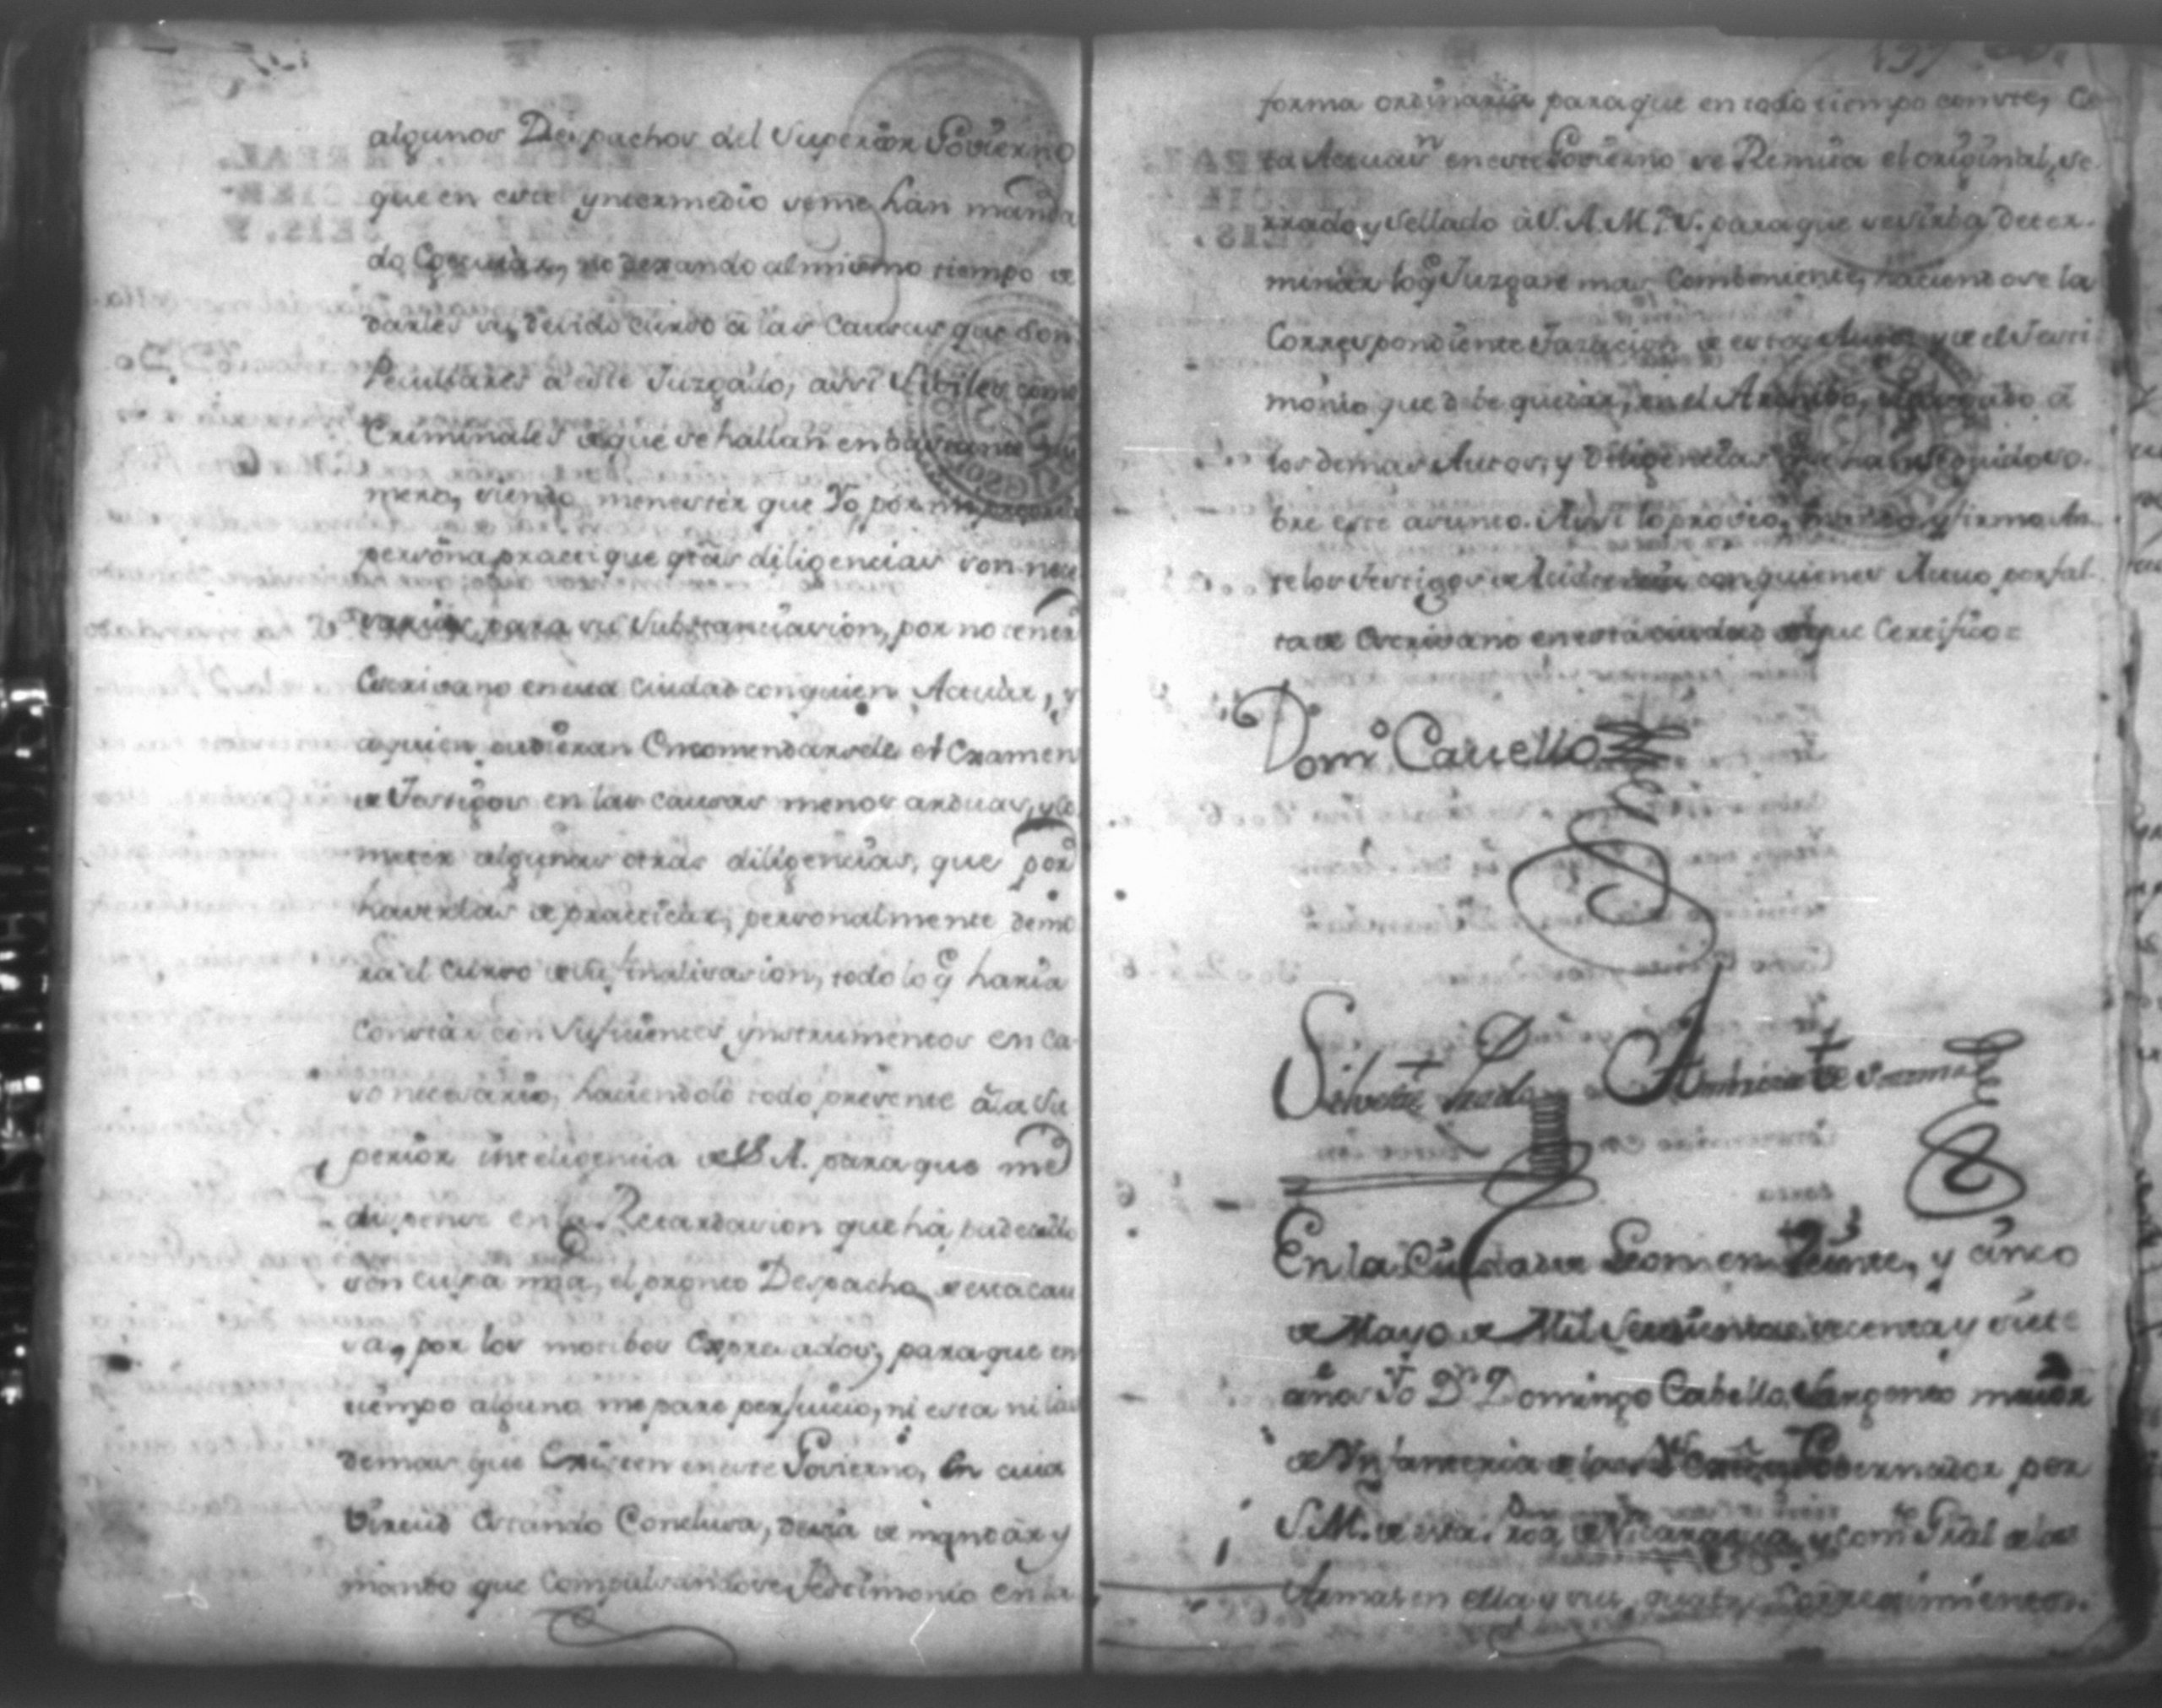 algunos Despachos del Superiòr Govierno
que en este yntermedio seme han manda
do Egecutàr, no dexando almismo tiempo de
darles su devido curso a las Causas que son
Peculiares a este Juzgado, assi Cibiles como
Criminales deque se hallan en bastante nu
mero, siendo menester que Yo por mi propria
persòna practique qtas diligencias son nece
sarias para su Substanciasion, por no tener
Escrivano enesta Ciudad conquien Actuàr, y
aquien pudieran Encomendarsele el Examen
de Testigos en las causas menos arduas, y co
meter algunas otras diligencias, que por
haverlas de practicàr, personalmente demo
ra el curso de su finalisasion, todo lo q̃ haria
Constàr con suficientes ynstrumentos en ca
so necesario, haciendolo todo presente â la Su
perior inteligencia de V. A. para que me
dispense en la Retardasion que há padecido
sin culpa mia, el pronto Despacho de esta cau
sa, por los motibos Expresados, para que en
tiempo alguno me pare perjuicio, ni esta ni las
demas que Existen eneste Govierno, En cuia
Virtud Estando Conclusa, devia de mandàr y
mando que Compulsandose Testimonio en la
forma ordinaria paraque en todo tiempo conste, Es
ta Actuasn eneste Govierno se Remita el original, se
rrado y sellado à V. A. M. P. S. para que se sirba deter-
minàr loq̃ Juzgare mas Combeniente, haciendose la
Correspondiente Tasacion de estos Autos y de el Testi
monio que debe quedàr, en el Archibo, Agregado à
los demas Autos, y Diligencias que se han seguido so-
bre este asunto. Assi lo proveo, mando y firmo An-
te los Testigos de Asistencia conquienes Actuo por fal-
ta de Escrivano enesta ciudad deque Certifico=
Domo Cavello
Silvestre Prado Ambrosio de Socomal
En la Ciudad de Leon en Veinte, y cinco
de Mayo de Mil Setesientos secenta y siete
años Yo Dn Domingo Cabello Sargento maior
de Ynfanteria Governador por
S. M. de esta Proa de Nicaragua, y Comte Gral de las
Armas en ella y sus quatro Corregimientos.